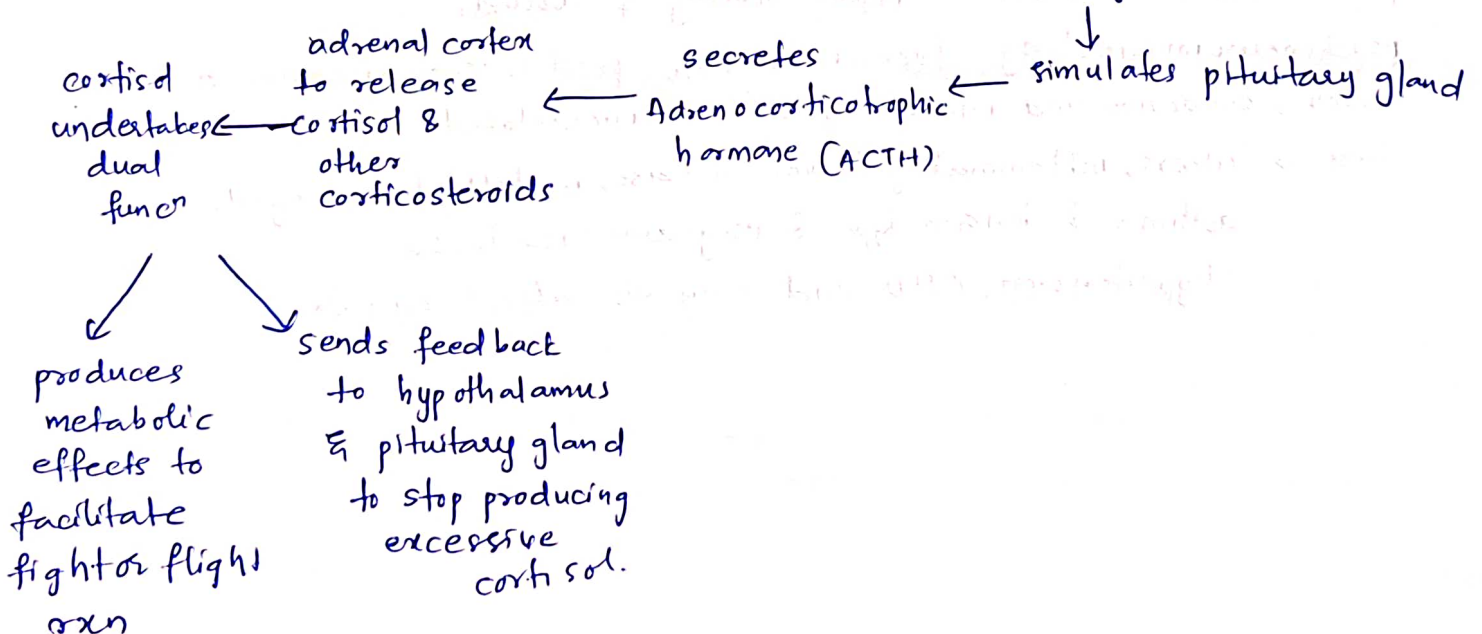 simulates pituitary gland
secretes
Adrenocorticotrophic
hormone (ACTH)
adrenal cortex
to release
cortisol &
other
corticosteroids
cortisol
undertakes
dual
funcn
produces
metabolic
effects to
facilitate
fight or flight
rxn
sends feedback
to hypothalamus
& pituitary gland
to stop producing
excessive
cortisol.